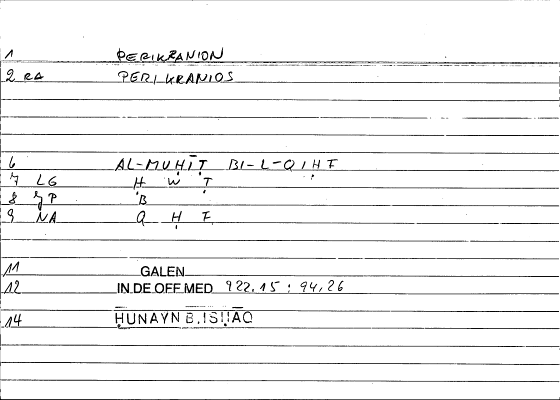 1 PERIKRANION
2 RA PERIKRANIOS
6 AL-MUḤĪṬ BI-L-QIḤF
7 LG Ḥ W Ṭ
8 SP B
9 NA Q Ḥ F
11 GALEN
12 IN DE OFF. MED 922,15 : 94,26
14 ḤUNAYN B. ISḤĀQ